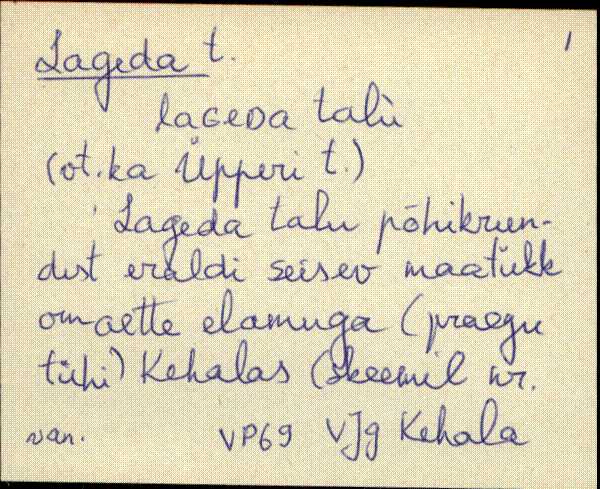 1
Lageda t.
laGeDa talù
(vt. ka Üpperi t.)
Lageda talu põhikrun-
dist eraldi seisev maatükk
omaette elamuga (praegu
tühi) Kehalas (skeemil nr.
van. VP69 VJg Kehala